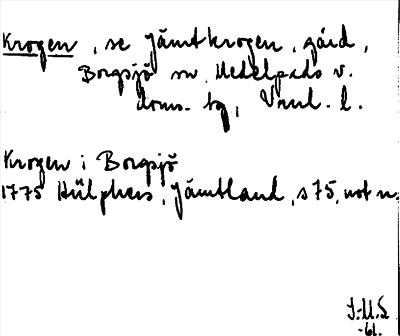 Krogen, se Jämtkrogen, gård,
Borgsjö sn, Medelpads v.
doms. tg, Vnl. l.
Krogen i Borgsjö
1775 Hülphers, Jämtland, s 75, not n.
J.-M.S
-61.